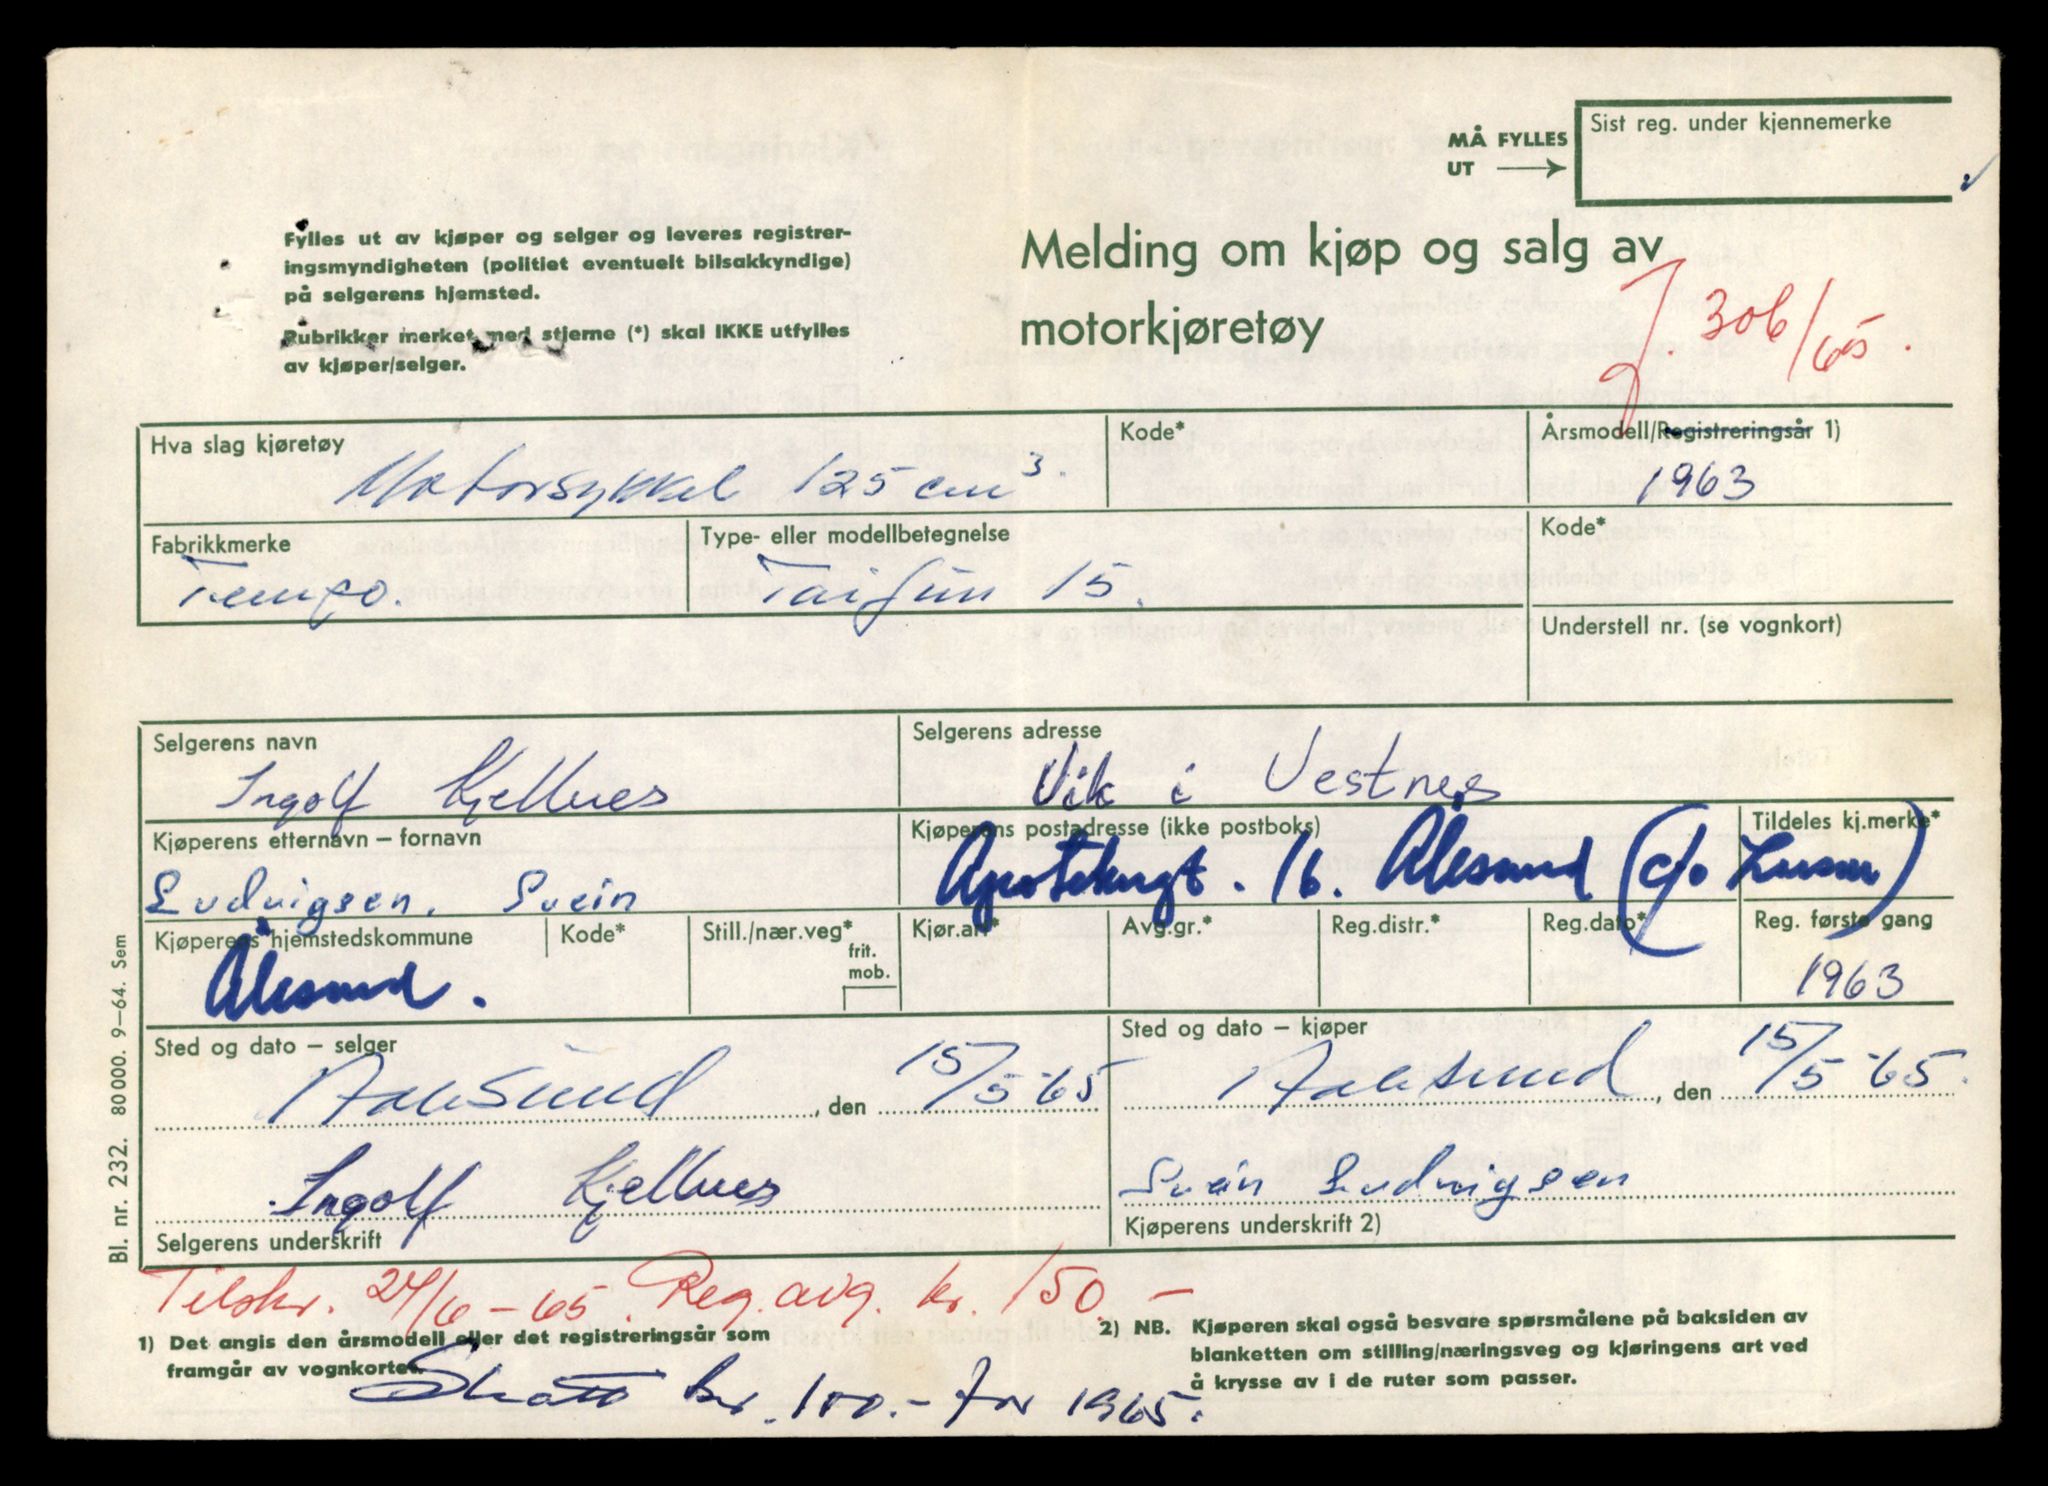 MÅ FYLLES
UT
Sist reg. under kjennemerke
Fylles ut av kjøper og selger og leveres registrer-
ingsmyndigheten (politiet eventuelt bilsakkyndige)
på selgerens hjemsted.
Rubrikker merket med stjerne (*) skal IKKE utfylles
av kjøper/selger.
Melding om kjøp og salg av
motorkjøretøy
J. 306/65.
Hva slag kjøretøy
Motorsykkel 125 cm³.
Kode*
Årsmodell/Registreringsår 1)
1963
Fabrikkmerke
Tempo.
Type- eller modellbetegnelse
Taifun 15.
Kode*
Understell nr. (se vognkort)
Selgerens navn
Ingolf Kjellnes
Selgerens adresse
Vik i Vestnes
Kjøperens etternavn – fornavn
Ludvigsen, Svein
Kjøperens postadresse (ikke postboks)
Apotekergt. 16. Ålesund (c/o Larsen)
Tildeles kj.merke*
Kjøperens hjemstedskommune
Ålesund.
Kode*
Still./nær.veg*
frit.
mob.
Kjør.art*
Avg.gr.*
Reg.distr.*
Reg.dato*
Reg. første gang
1963
Sted og dato – selger
Aalesund, den 15/5-65
Sted og dato – kjøper
Aalesund, den 15/5-65.
Ingolf Kjellnes
Selgerens underskrift
Svein Ludvigsen
Kjøperens underskrift 2)
Bl. nr. 232. 80000. 9–64. Sem
Tilskr. 24/6-65. Reg.avg. kr. 150.-
1) Det angis den årsmodell eller det registreringsår som
framgår av vognkortet.
2) NB. Kjøperen skal også besvare spørsmålene på baksiden av
blanketten om stilling/næringsveg og kjøringens art ved
å krysse av i de ruter som passer.
Skatt kr. 100.- for 1965.